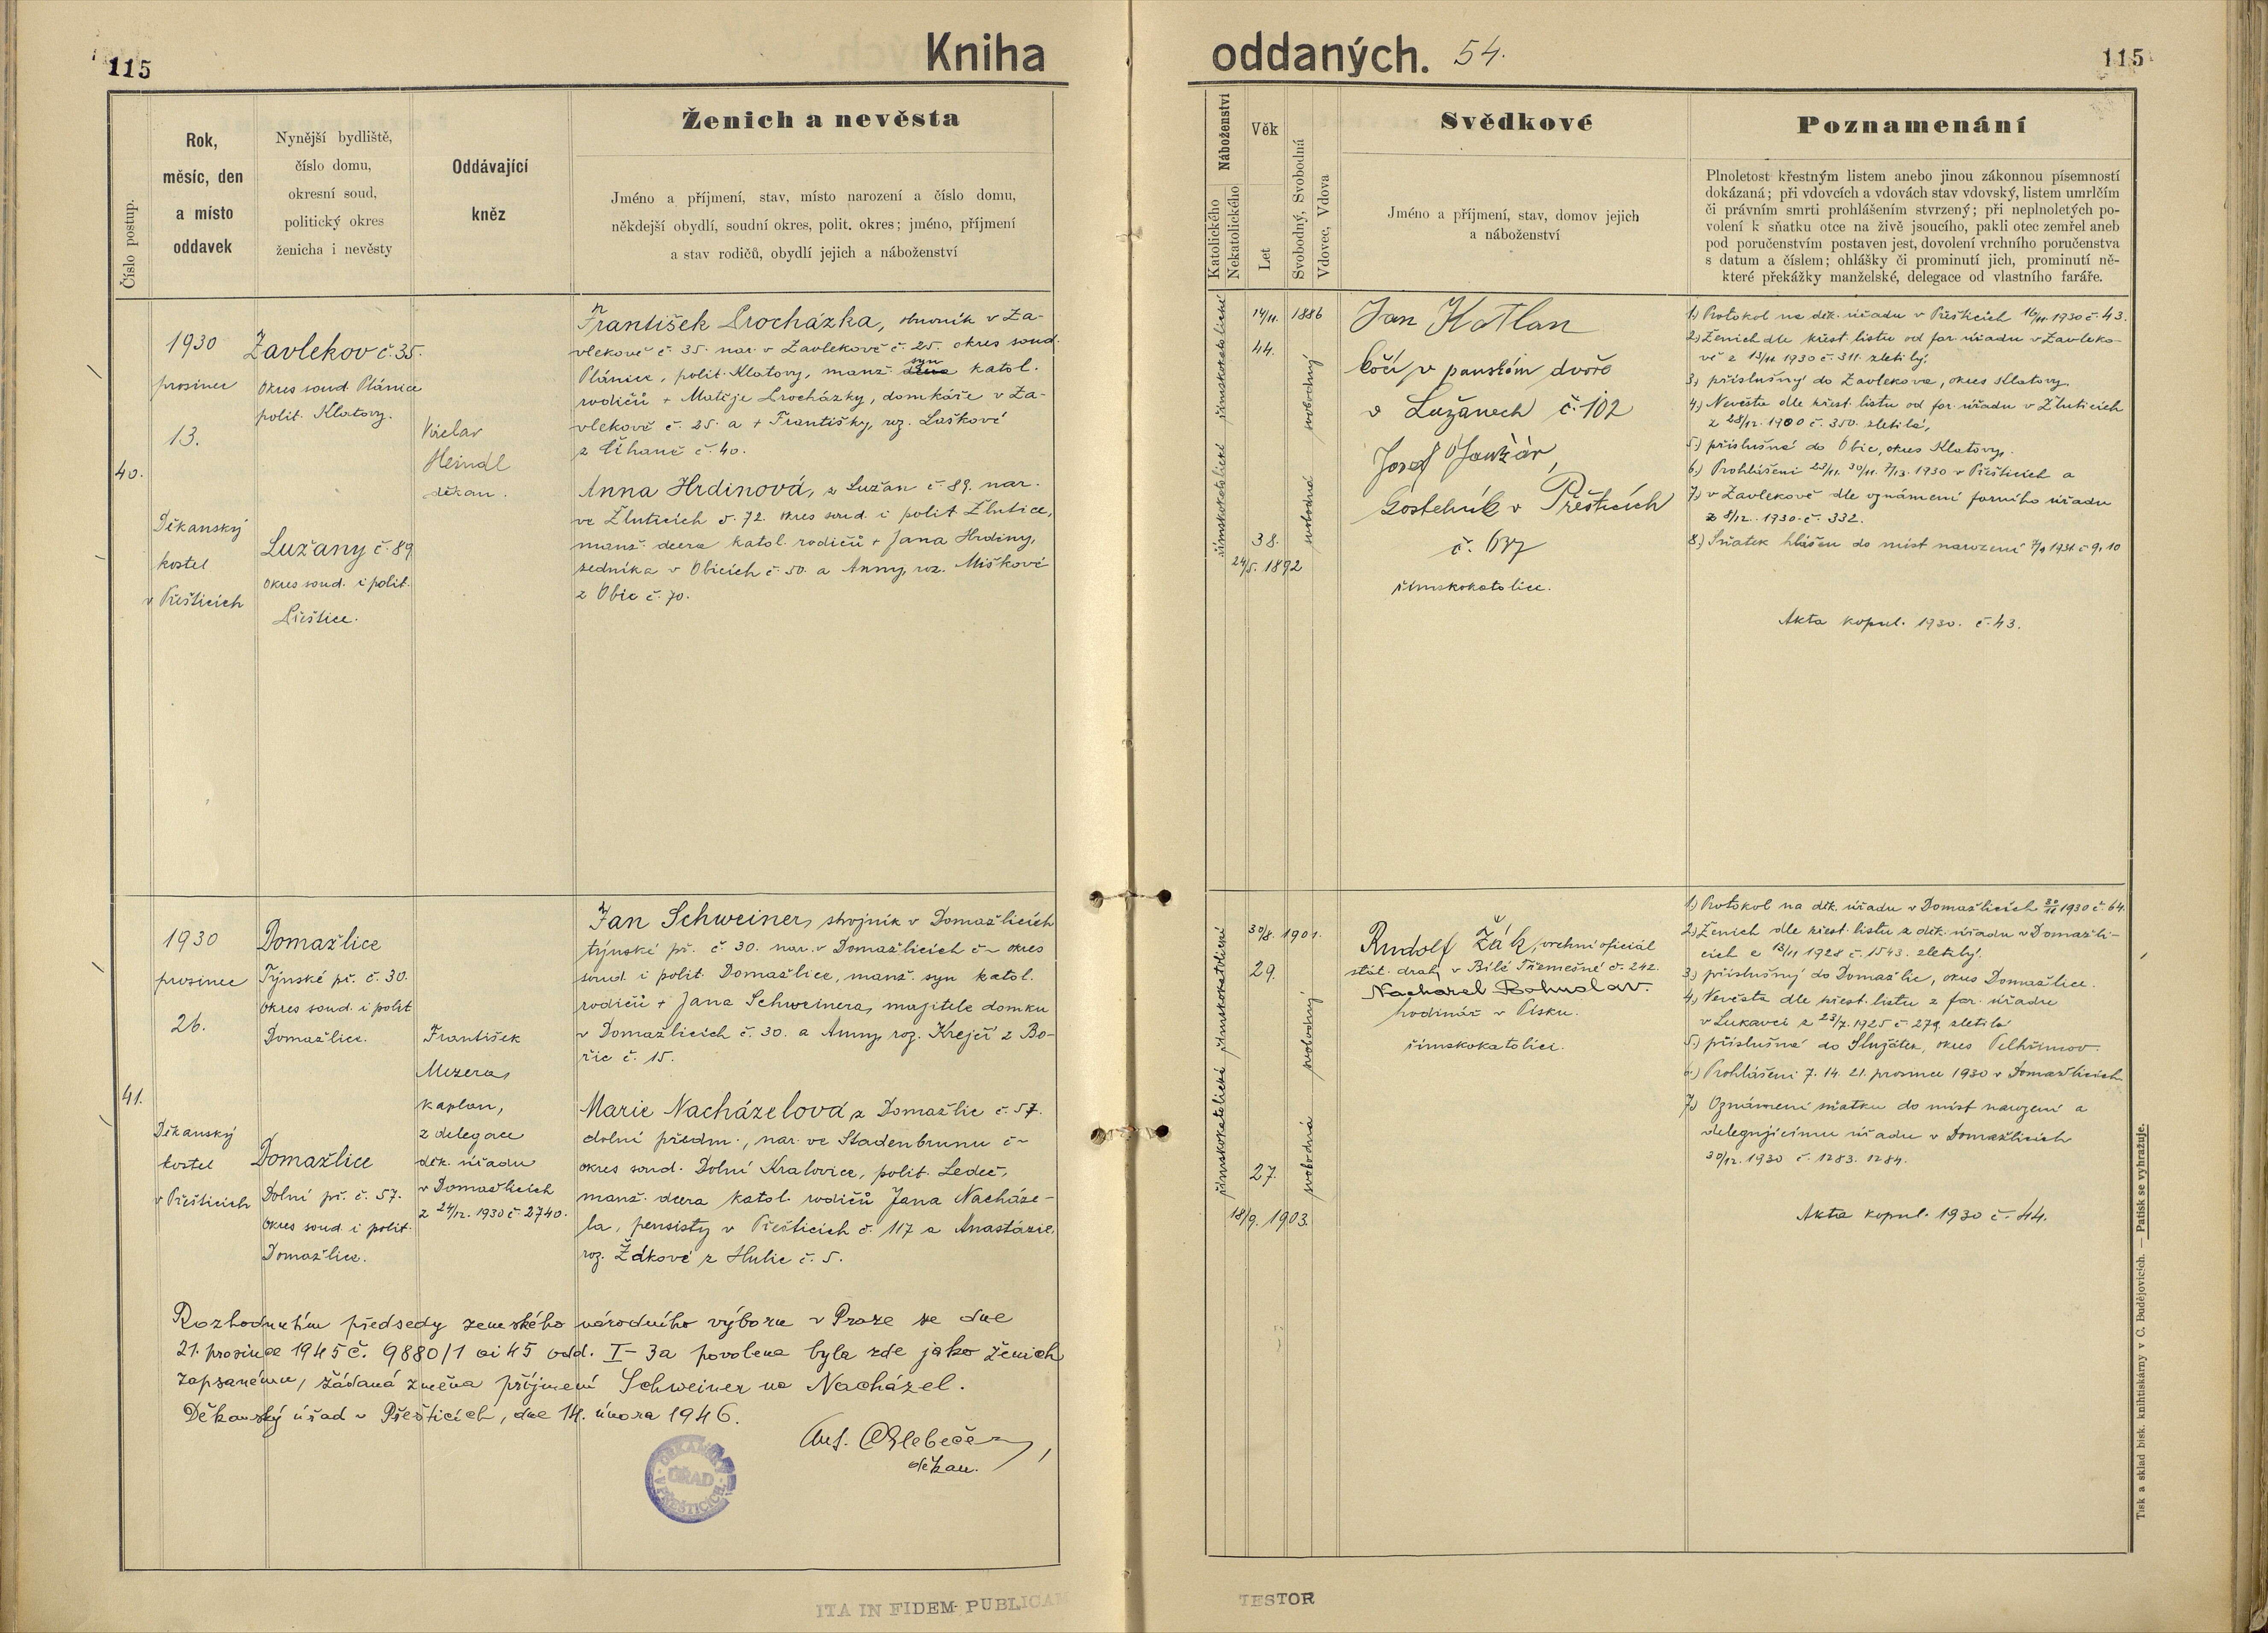 115
Kniha
Číslo postup.
Rok,
měsíc, den
a místo
oddavek
Nynější bydliště,
číslo domu,
okresní soud,
politický okres
ženicha i nevěsty
Oddávající
kněz
Ženich a nevěsta
Jméno a příjmení, stav, místo narození a číslo domu,
někdejší obydlí, soudní okres, polit. okres; jméno, příjmení
a stav rodičů, obydlí jejich a náboženství
40.
1930
prosinec
13.
Děkanský
kostel
v Přešticích
Zavlekov č. 35.
okres soud. Plánice
polit. Klatovy.
Lužany č. 89
okres soud. i polit.
Přeštice.
Václav
Heindl
děkan.
František Procházka, v Za-
vlekově č. 35. nar. v Zavlekově č. 25. okres soud.
Plánice, polit. Klatovy, manž. syn katol.
rodičů + Matěje Procházky, domkáře v Za-
vlekově č. 25. a + Františky, roz. Laškové
z Číhaně č. 40.
Anna Hrdinová, z Lužan č. 89. nar.
ve Žluticích č. 72. okres soud. i polit Žlutice,
manž. dcera katol. rodičů + Jana Hrdiny,
sedníka v Obicích č. 50. a Anny, roz. Miškové
z Obic č. 70.
41.
1930
prosinec
26.
Děkanský
kostel
v Přešticích
Domažlice
Týnské př. č. 30.
okres soud. i polit
Domažlice.
Domažlice
Dolní př. č. 57.
okres soud. i polit.
Domažlice.
František
Mezera,
kaplan,
z delegace
děk. úřadu
v Domažlicích
z 24/12. 1930 č. 2740.
Jan Schweiner, strojník v Domažlicích
týnské př. č. 30. nar. v Domažlicích č - okres
soud. i polit. Domažlice, manž. syn katol.
rodičů + Jana Schweinera, majitele domku
v Domažlicích č. 30. a Anny, roz. Krejčí z Bo-
řic č. 15.
Marie Nacházelová z Domažlic č. 57.
dolní předm., nar. ve Stadenbrunu č -
okres soud. Dolní Kralovice, polit. Ledeč,
manž. dcera katol. rodičů Jana Nacháze-
la, pensisty v Přešticích č. 117 a Anastázie,
roz. Žákové z Hulic č. 5.
Rozhodnutím předsedy zemského národního výboru v Praze ze dne
21. prosince 1945 č. 9880/1 ai 45 odd. I-3a povolena byla zde jako ženich
zapsanému, žádaná změna příjmení Schweiner na Nacházel.
Děkanský úřad v Přešticích, dne 14. února 1946.
Ant.
děkan.
DĚKANSKÝ
ÚŘAD
V PŘEŠTICÍCH
ITA IN FIDEM PUBLICAM
oddaných. 54.
115
Náboženství
Katolického
Nekatolického
Věk
Let
Svobodný, Svobodná
Vdovec, Vdova
Svědkové
Jméno a příjmení, stav, domov jejich
a náboženství
Poznamenání
Plnoletost křestným listem anebo jinou zákonnou písemností
dokázaná; při vdovcích a vdovách stav vdovský, listem umrlčím
či právním smrti prohlášením stvrzený; při neplnoletých po-
volení k sňatku otce na živě jsoucího, pakli otec zemřel aneb
pod poručenstvím postaven jest, dovolení vrchního poručenstva
s datum a číslem; ohlášky či prominutí jich, prominutí ně-
které překážky manželské, delegace od vlastního faráře.
římskokatolické
římskokatolické
14/11. 1886
44.
38.
24/5. 1892
svobodný
svobodná
Jan Kotlan
kočí v panském dvoře
v Lužanech č. 102
Josef
kostelník v Přešticích
č. 637
římskokatolíci.
1.) Protokol na děk. úřadu v Přešticích 16/11. 1930 č. 43.
2.) Ženich dle křest. listu od far. úřadu v Zavleko-
vě z 13/11 1930 č. 311. zletilý.
3.) příslušný do Zavlekova, okres Klatovy.
4.) Nevěsta dle křest. listu od far. úřadu v Žluticích
z 28/12. 1900 č. 350. zletilá,
5.) příslušná do Obic, okres Klatovy.
6.) Prohlášeni 23/11. 30/11. 7/12. 1930 v Přešticích a
7.) v Zavlekově dle oznámení farního úřadu
z 8/12. 1930 č. 332.
8.) Sňatek hlášen do míst narození 7/1 1931 č 9, 10
Akta kopul. 1930. č. 43.
římskokatolické
římskokatolické
30/8. 1901.
29.
27.
18/9. 1903.
svobodný
svobodná
Rudolf Žák, vrchní oficiál
stát. drah v Bílé Třemešné č. 242.
Nacházel Bohuslav.
hodinář v Písku.
římskokatolíci.
1.) Protokol na děk. úřadu v Domažlicích 30/11 1930 č. 64.
2.) Ženich dle křest. listu z děk. úřadu v Domažli-
cích z 13/11 1928 č. 1543. zletilý.
3.) příslušný do Domažlic, okres Domažlice.
4.) Nevěsta dle křest. listu z far. úřadu
v Lukavci z 23/7. 1925 č. 279 zletilá
5.) příslušná do Služátek, okres Pelhřimov.
6.) Prohlášeni 7. 14. 21. prosince 1930 v Domažlicích
7.) Oznámení sňatku do míst narození a
delegujícímu úřadu v Domažlicích
30/12. 1930 č. 1283. 1284.
Akta kopul. 1930 č. 44.
Tisk a sklad bisk. knihtiskárny v Č. Budějovicích. — Patisk se vyhražuje.
TESTOR